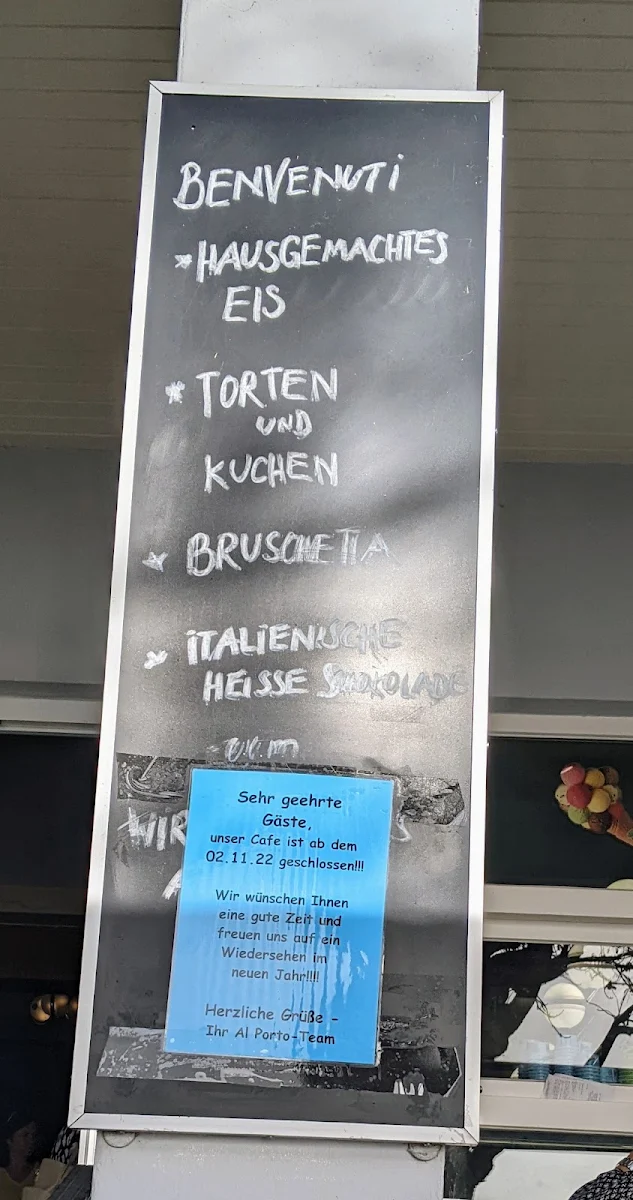 BENVENUTi
*HAUSGEMACHTES
EIS
* TORTEN
UND
KUCHEN
* BRUSCHETTA
* iTALIENISCHE
HEISSE SCHOKOLADE
u.v.m
WIR
Sehr geehrte
Gäste,
unser Cafe ist ab dem
02.11.22 geschlossen!!!
Wir wünschen Ihnen
eine gute Zeit und
freuen uns auf ein
Wiedersehen im
neuen Jahr!!!!
Herzliche Grüße –
Ihr Al Porto-Team